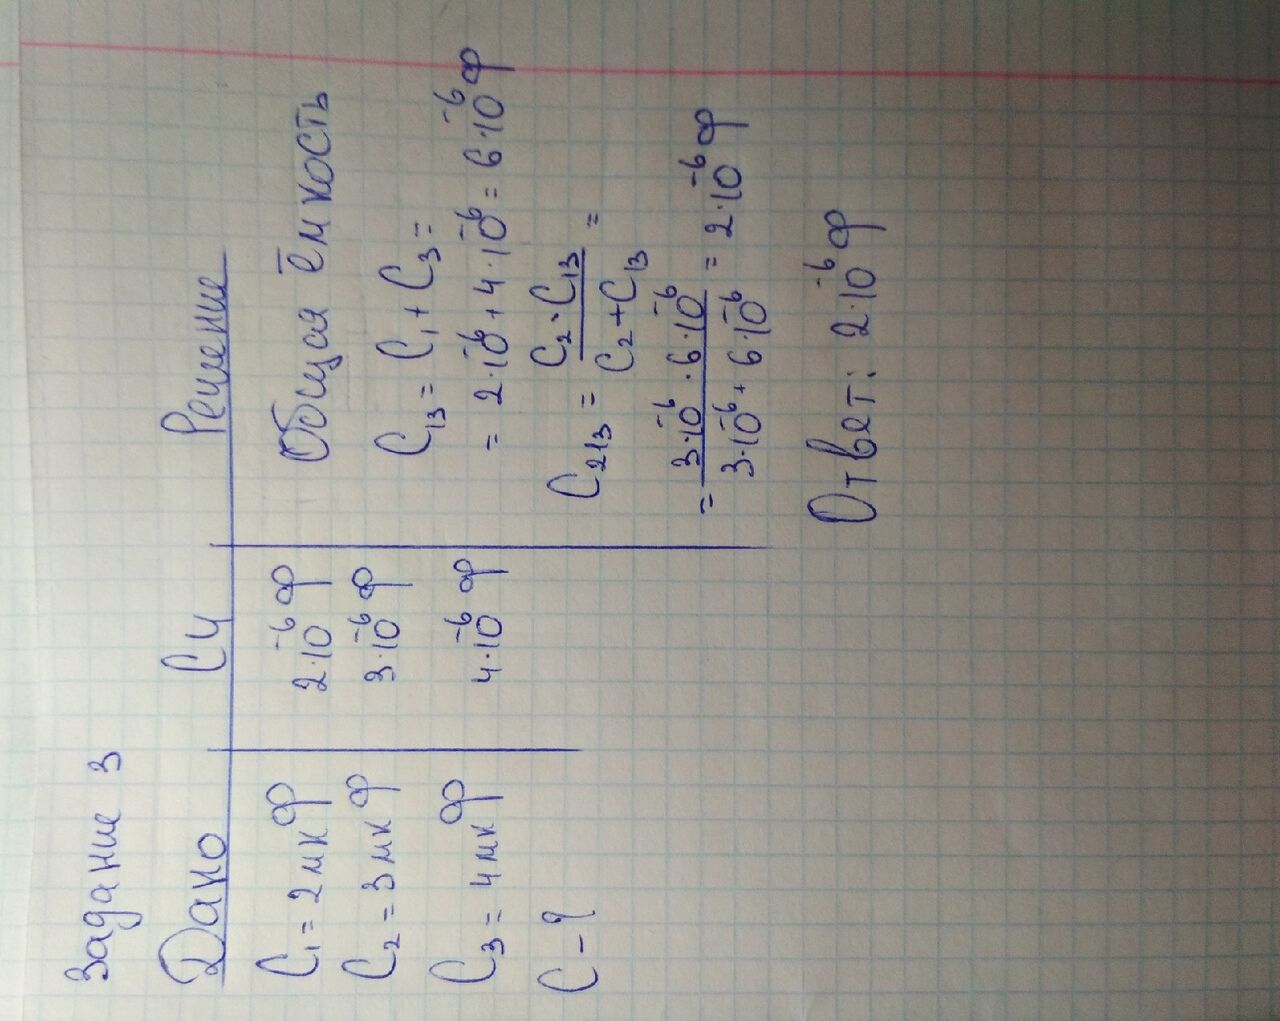 Задание 3
Дано СИ Решение
C₁ = 2 мкФ 2·10⁻⁶ Ф Общая ёмкость
C₂ = 3 мкФ 3·10⁻⁶ Ф C₁₃ = C₁ + C₃ =
C₃ = 4 мкФ 4·10⁻⁶ Ф = 2·10⁻⁶ + 4·10⁻⁶ = 6·10⁻⁶ Ф
C - ? C₂₁₃ = C₂·C₁₃ / C₂+C₁₃ =
= 3·10⁻⁶·6·10⁻⁶ / 3·10⁻⁶+6·10⁻⁶ = 2·10⁻⁶ Ф
Ответ: 2·10⁻⁶ Ф